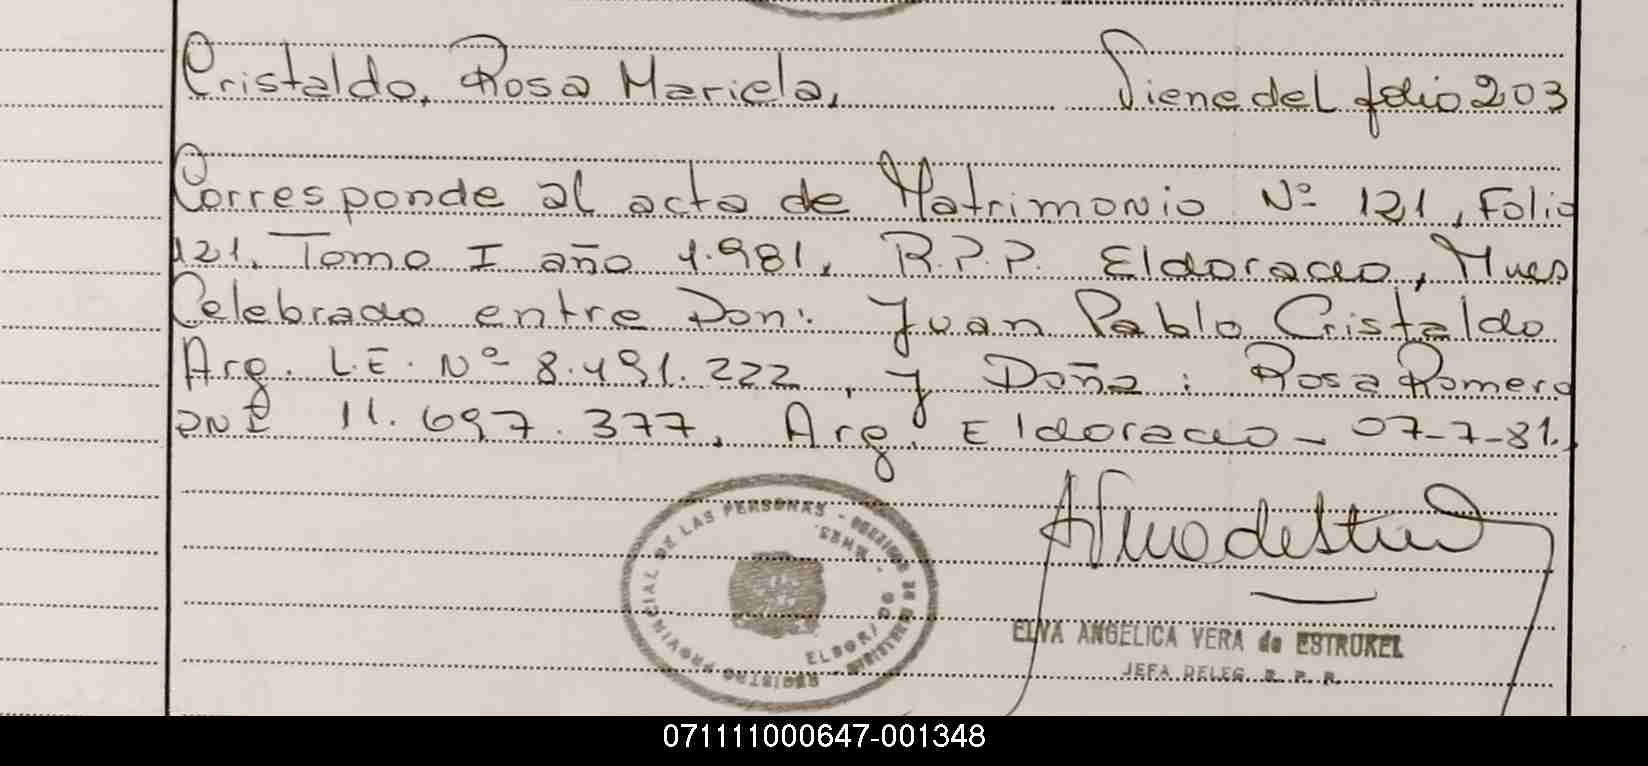 Cristaldo, Rosa Mariela, Viene del folio 203
Corresponde al acta de Matrimonio Nº 121, Folio
121, Tomo I año 1.981, R.P.P. Eldorado, Mnes
Celebrado entre Don: Juan Pablo Cristaldo
Arg. L.E. Nº 8.491.222, y Doña: Rosa Romero
DNI 11.697.377, Arg. Eldorado - 07-7-81.
REGISTRO PROVINCIAL DE LAS PERSONAS
ELDORADO - MNES.
ELVA ANGELICA VERA de ESTRUKEL
JEFA DELEG. R. P. P.
071111000647-001348